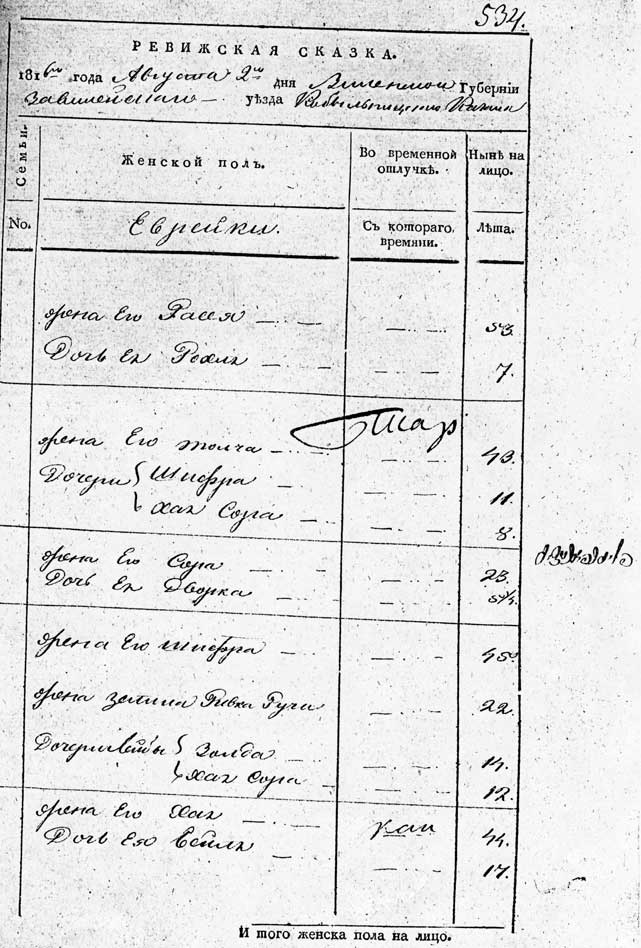 534.
РЕВИЖСКАЯ СКАЗКА.
1816го года Августа 2го дня Виленской Губернiи
Завилейскаго уѣзда
Семьи.
Женской полъ.
Во временной отлучкѣ.
Нынѣ на лицо.
No.
Еврейки.
Съ котораго времяни.
Лѣта.
жена Его Гася — — — — 53.
Дочь Ея Рохля — — — — 7.
жена Его — — — 43.
Дочери { Шифра — — — 11.
Хая Сора — — — 8.
жена Его Сора — — — 23.
Дочь Ея Дворка — — —
жена Его Шифра — — — 45
жена Зелмана Ривка — — — 22.
Дочери { Золда — — — 14.
Хая Сора — — — 12.
жена Его Хая — — 44.
Дочь Ея Бейля — — — 17.
И того женска пола на лицо.